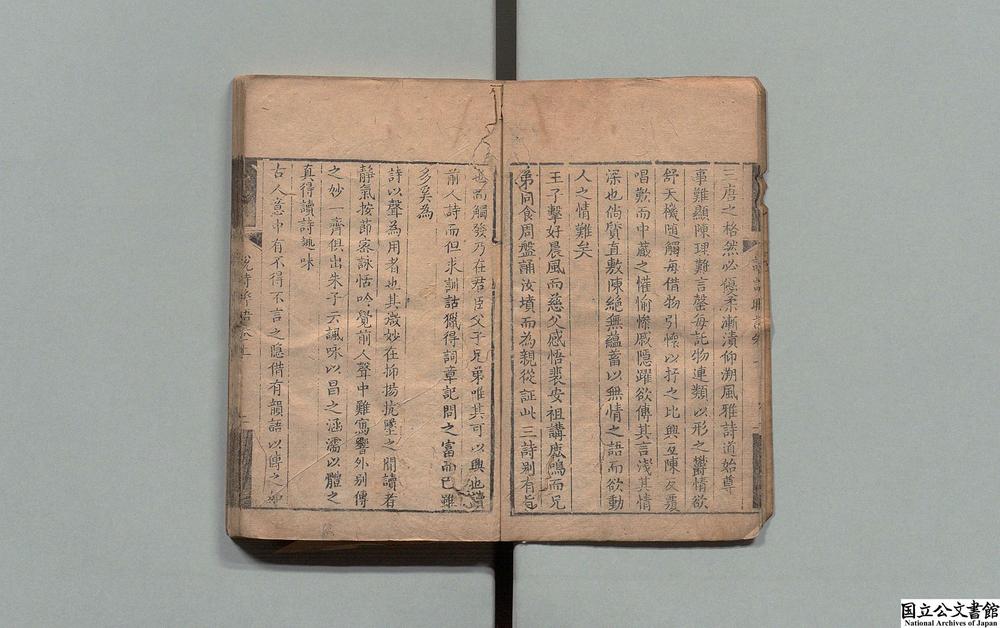 三唐之格然必優柔漸漬仰溯風雅詩道始尊
事難顯陳理難言罄每託物連類以形之鬱情欲
舒天機隨觸每借物引懷以抒之比興互陳反覆
唱歎而中藏之懽愉慘戚隱躍欲傳其言淺其情
深也倘質直敷陳絶無蘊蓄以無情之語而欲動
人之情難矣
王子擊好晨風而慈父感悟裴安祖講鹿鳴而兄
弟同食周盤誦汝墳而為親從征此三詩别有旨
也而觸發乃在君臣父子兄弟唯其可以興也讀
前人詩而但求訓詁獵得詞章記問之富而已雖
多奚為
詩以聲為用者也其微妙在抑揚抗墜之間讀者
靜氣按節密詠恬吟覺前人聲中難寫響外别傳
之妙一齊俱出朱子云諷咏以昌之涵濡以體之
真得讀詩趣味
古人意中有不得不言之隱借有韻語以傳之如
説詩晬語卷上
国立公文書館
National Archives of Japan